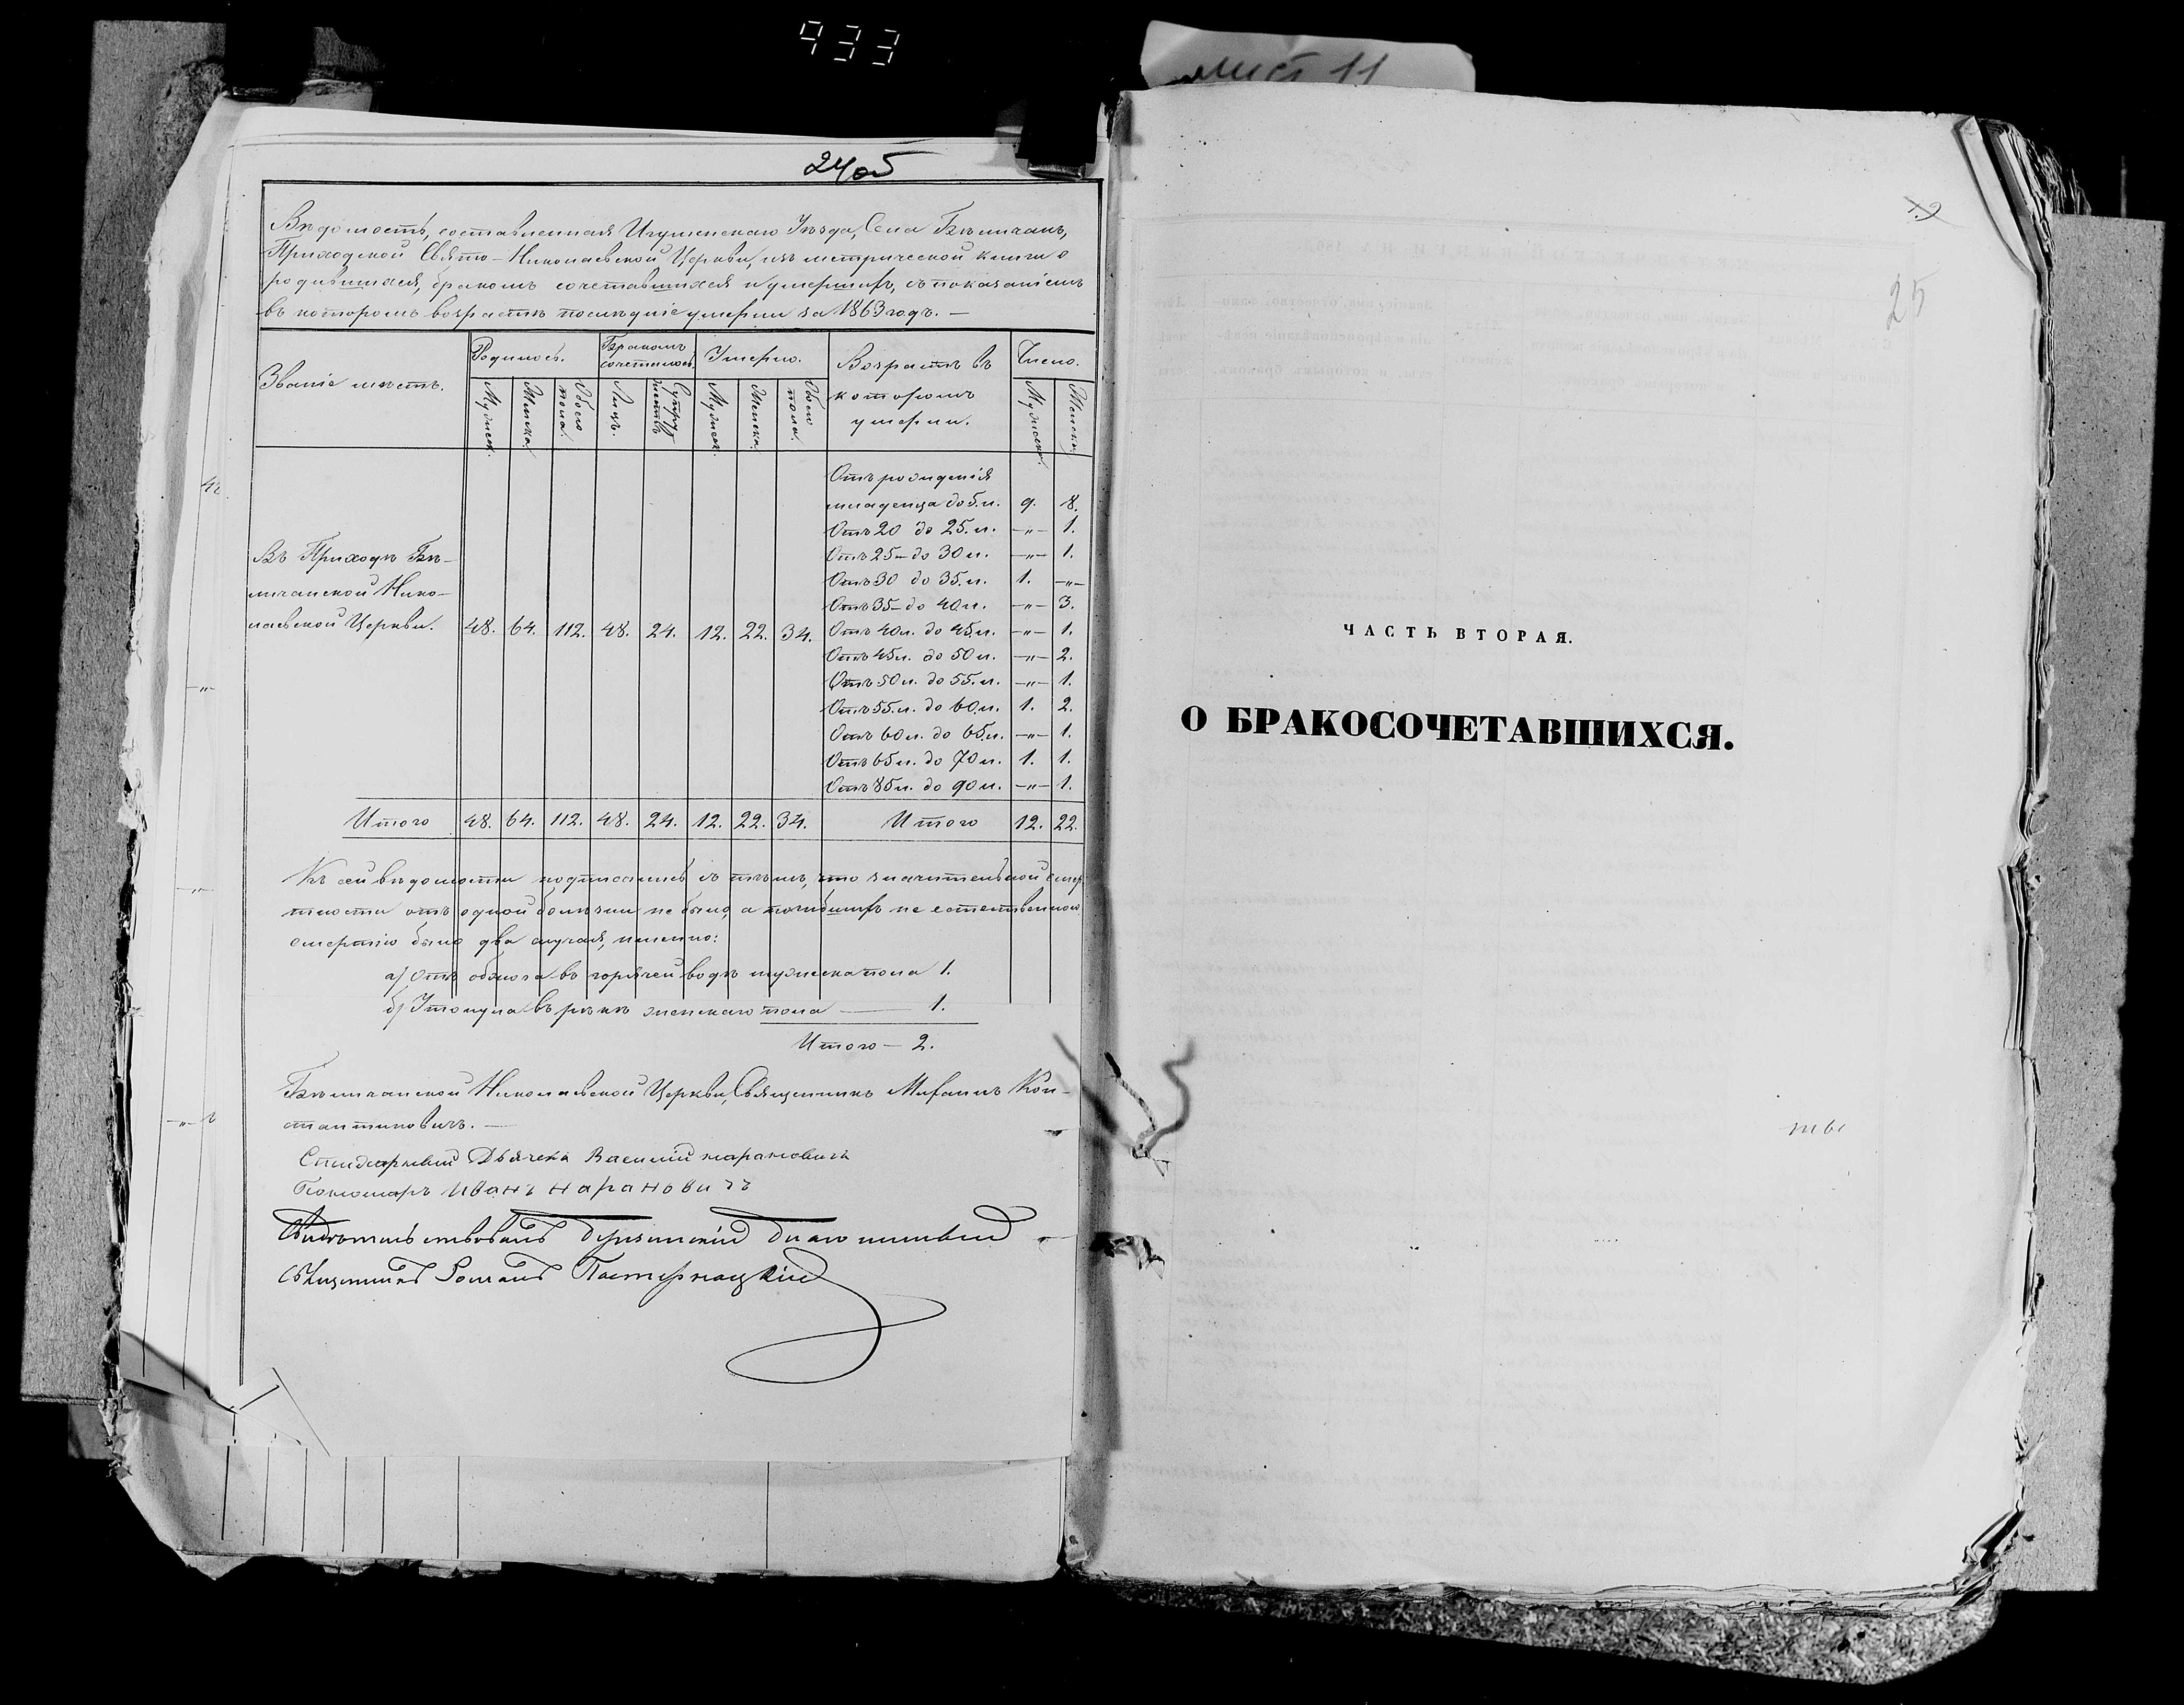 933
лист 11
24об
Вѣдомость, составленная Игуменскаго Уѣзда, Села Бѣличанъ,
Приходской Свято-Николаевской Церкви, изъ метрической книги о
родившихся, бракомъ сочетавшихся и умершихъ, съ показаніемъ
въ которомъ возрастѣ послѣдніе умерли за 1863 годъ. —
Званіе мѣстъ.
Родилось.
Бракомъ сочеталось.
Умерло.
Возрастъ въ
котором
умерли.
Число.
Мужск.
Женска
Обоего пола.
Лицъ.
Супружествъ
Мужск.
Женска.
Обоего пола.
Мужск.
Женска.
Въ Приходѣ Бѣ-
личанской Нико-
лаевской Церкви.
48. 64. 112. 48. 24. 12. 22. 34.
Отъ рожденія
младенца до 5. л. 9. 8.
Отъ 20 до 25. л. —„— 1.
Отъ 25 — до 30 л. —„— 1.
Отъ 30 до 35. л. 1. —„—
Отъ 35 — до 40 л. —„— 3.
Отъ 40 л. до 45 л. —„— 1.
Отъ 45 л. до 50 л. —„— 2.
Отъ 50 л. до 55. л. —„— 1.
Отъ 55. л. до 60. л. 1. 2.
Отъ 60 л. до 65 л. —„— 1.
Отъ 65 л. до 70 л. 1. 1.
Отъ 85 л. до 90 л. —„— 1.
Итого 48. 64. 112. 48. 24. 12. 22. 34. Итого 12. 22.
Къ сей вѣдомости подписались съ тѣмъ, что значительной смер
тности отъ одной болѣзни не было, а погибшихъ не естественною
смертію было два случая, именно:
а) Отъ обжога въ горячей водѣ мужска пола 1.
б) Утонула въ рѣкѣ женскаго пола — 1.
Итого — 2.
Бѣличанской Николаевской Церкви, Священникъ Михаилъ Кон-
стантиновичъ. —
Дьячека Василій
Пономарь Иванъ Нарановичъ
Свидѣтельствовалъ благочинный
священникъ Романъ Пастернацкій
25
ЧАСТЬ ВТОРАЯ.
О БРАКОСОЧЕТАВШИХСЯ.